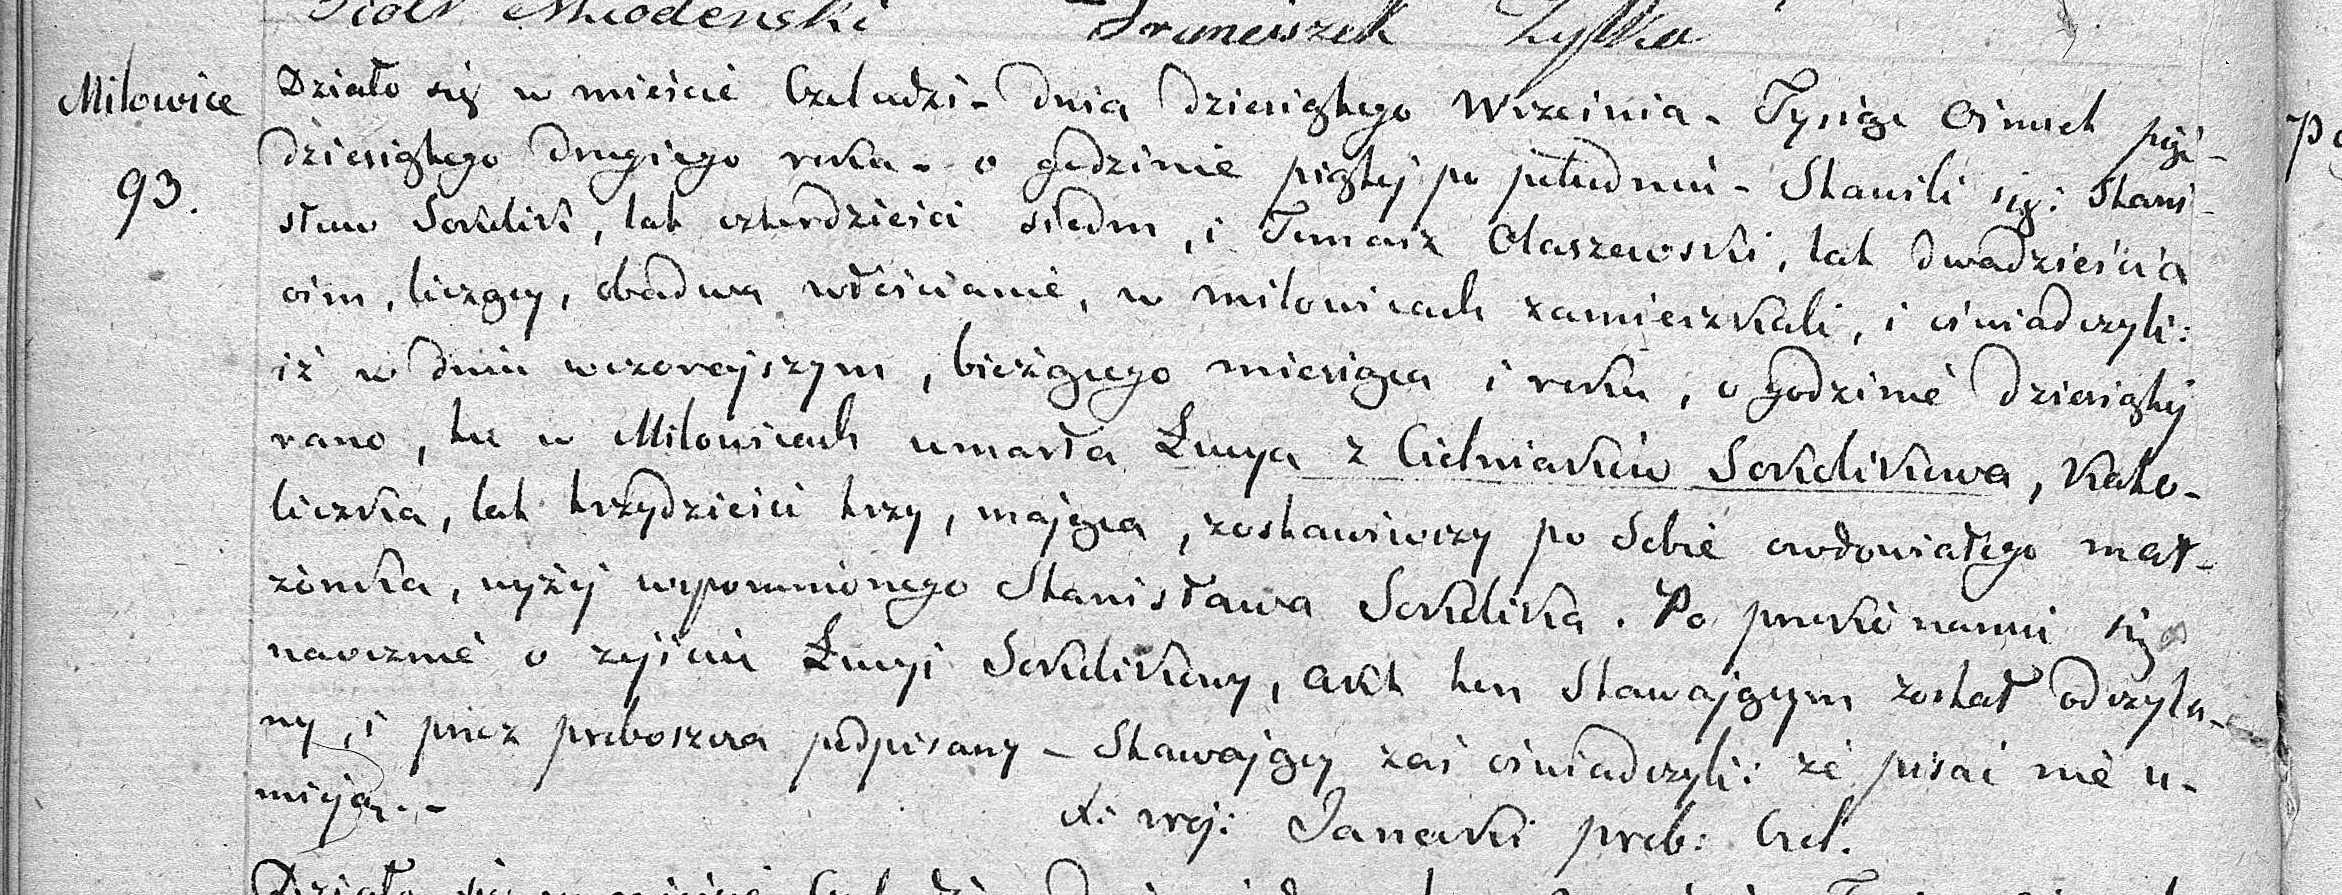 Piotr Miodeński Franciszek Zyłka
Milowice
93.
Działo się w mieście Czeladzi – dnia dziesiątego Września – Tysiąc Ośmset pięć-
dziesiątego drugiego roku – o godzinie piątej po południu – Stawili się: Stani-
sław Sokdlik, lat czterdzieści siedm, i Tomasz Olaszewski, lat dwadzieścia
ośm, liczący, obadwa włościanie, w Milowicach zamieszkali, i oświadczyli:
iż w dniu wczorajszym, bieżącego miesiąca i roku, o godzinie dziesiątej
rano, tu w Milowicach umarła Łucya z Cielniaków Sokdlikowa, kato-
liczka, lat trzydzieści trzy, mająca, zostawiwszy po Sobie owdowiałego mał-
żonka, wyżej wspomnionego Stanisława Sokdlika. Po przekonaniu się
naocznie o zejściu Łucyi Sokdlikowy, akt ten Stawającym został odczyta-
ny, i przez proboszcza podpisany – Stawający zaś oświadczyli: że pisać nie u-
mieją. –
X: Woj: Janecki prob: Czel.
Działo się w mieście